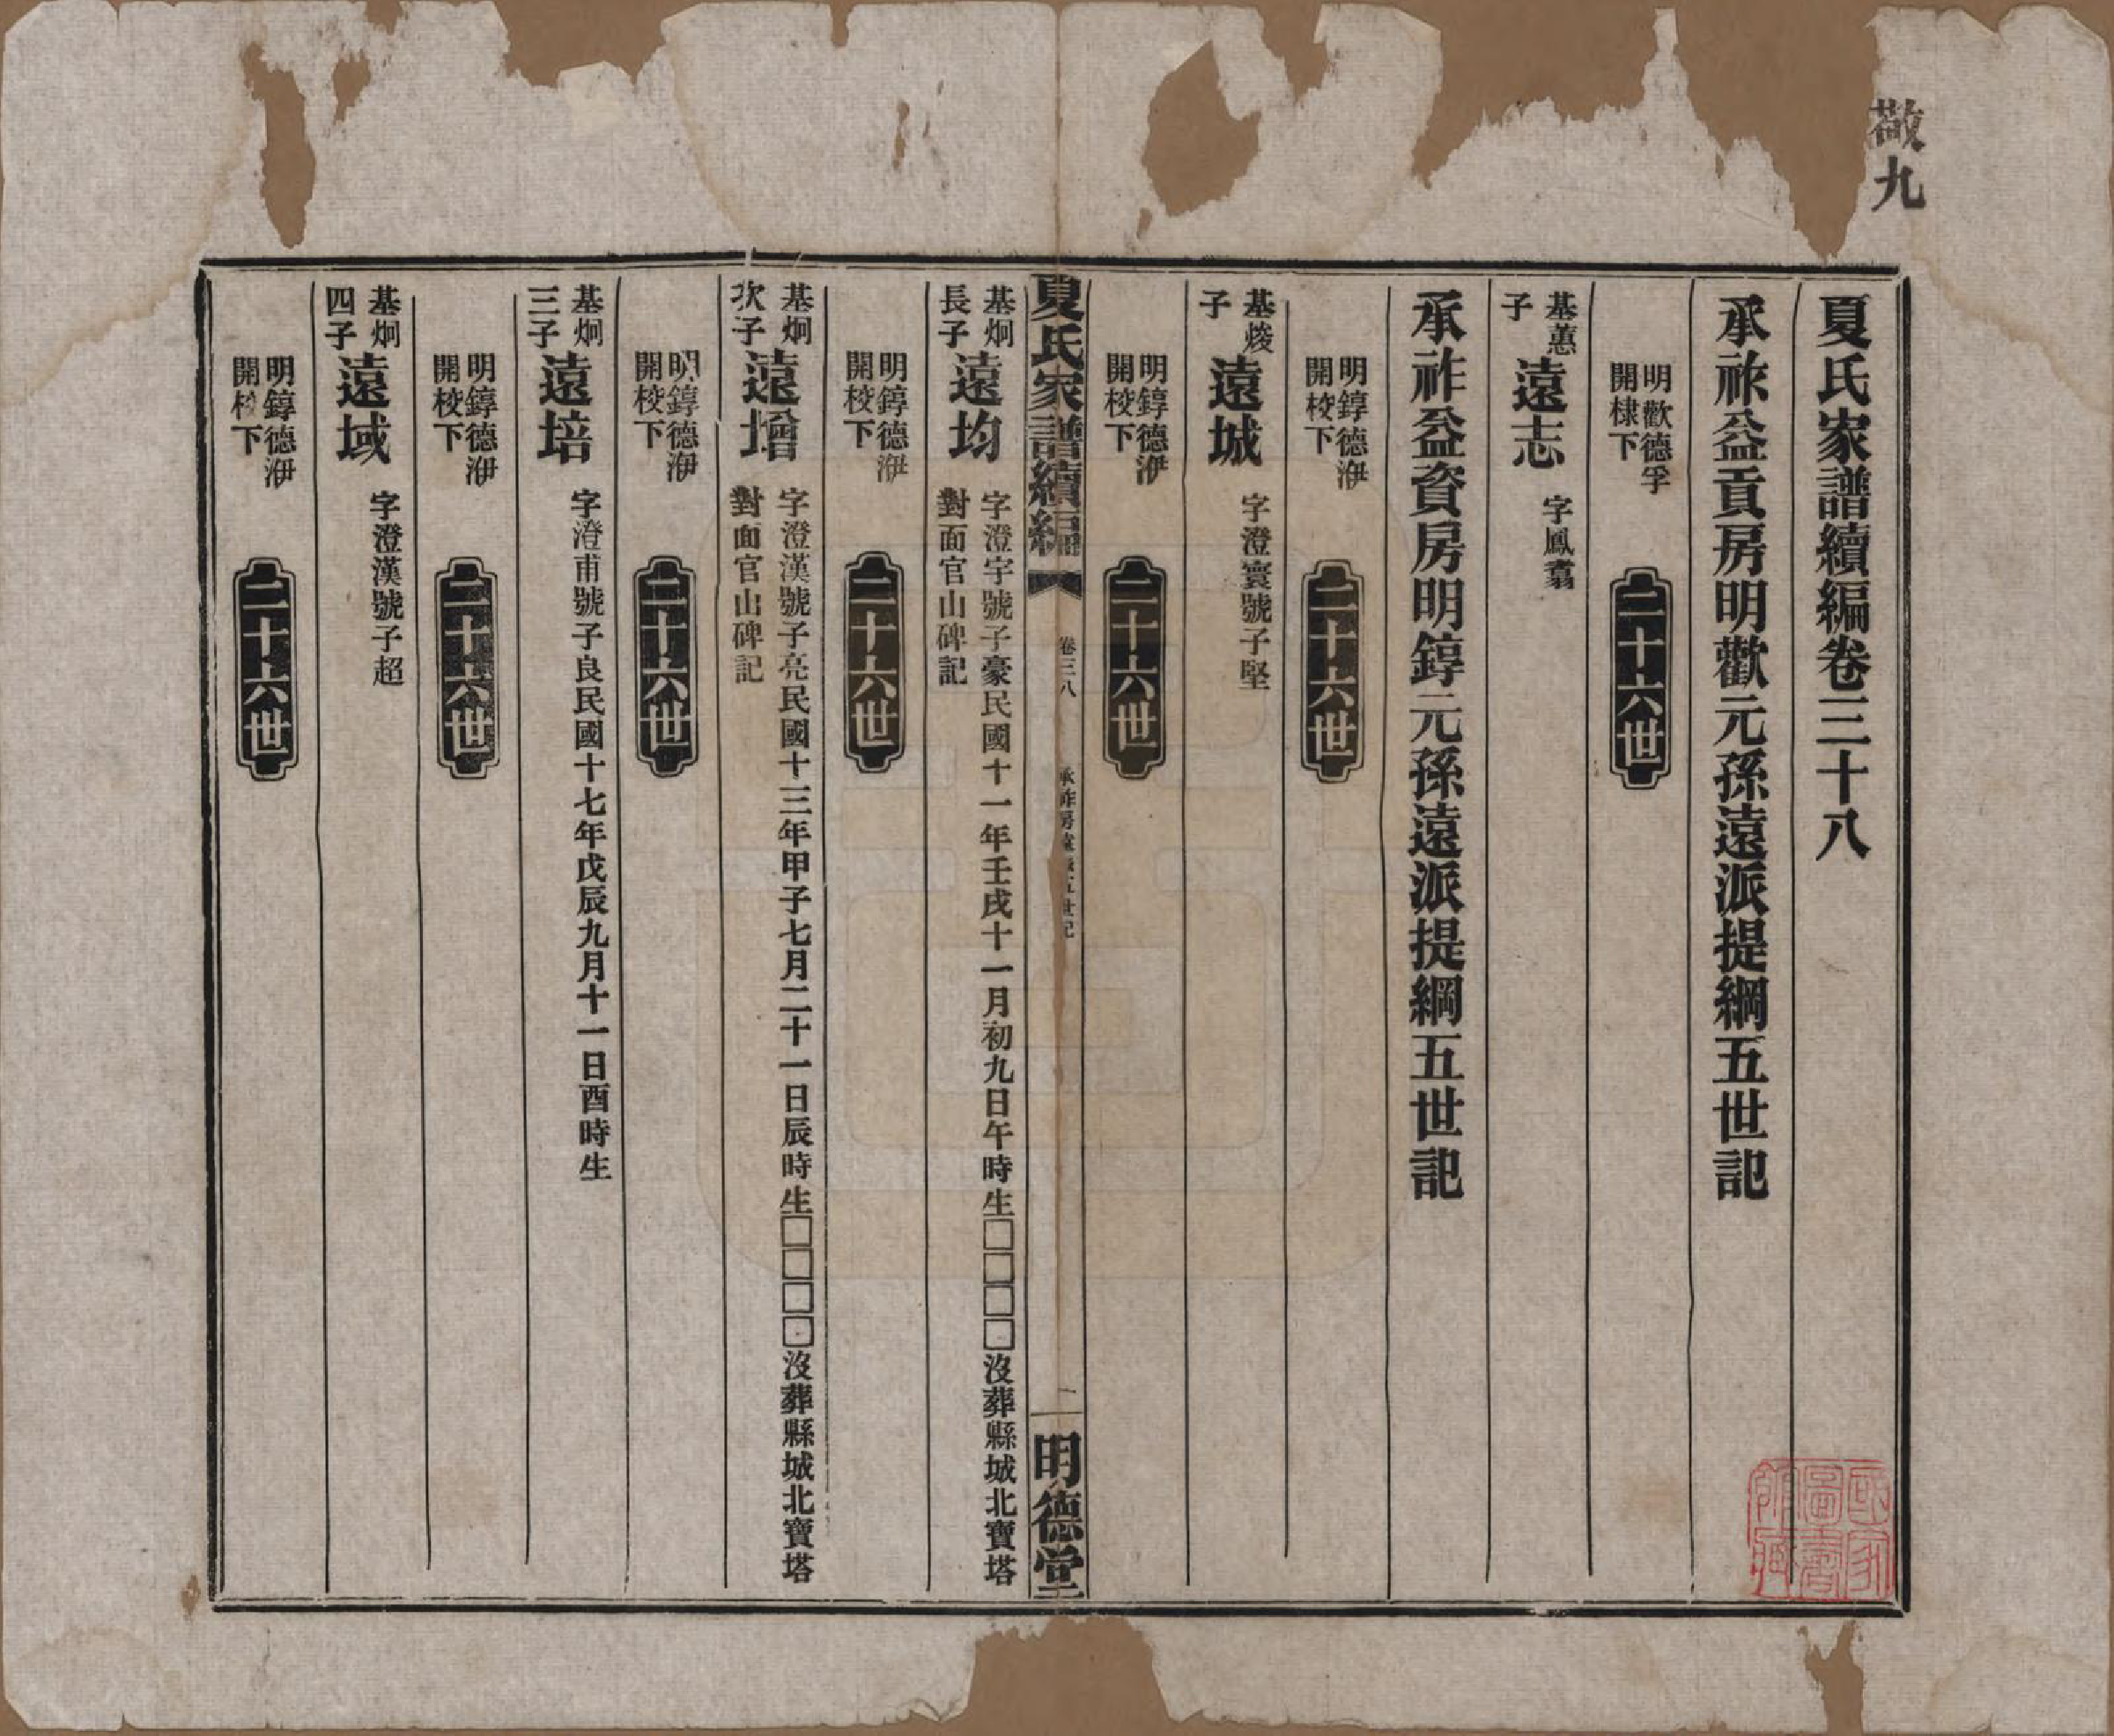 敬九
夏氏家譜續編卷三十八
承祚益貢房明歡元孫遠派提綱五世記
明歡德孚
開棣下
二十六世
基藼
子
遠志
字鳳翥
承祚益資房明錞元孫遠派提綱五世記
明錞德洢
開校下
二十六世
基焌
子
遠城
字澄寰號子堅
明錞德洢
開校下
二十六世
夏氏家譜續編
卷三八
承祚房遠派五世記
一
明德堂
基炯
長子
遠均
字澄宇號子豪民國十一年壬戌十一月初九日午時生□□□□沒葬縣城北寶塔
對面官山碑記
明錞德洢
開校下
二十六世
基炯
次子
遠增
字澄漢號子亮民國十三年甲子七月二十一日辰時生□□□□沒葬縣城北寶塔
對面官山碑記
明錞德洢
開校下
二十六世
基炯
三子
遠培
字澄甫號子良民國十七年戊辰九月十一日酉時生
明錞德洢
開校下
二十六世
基炯
四子
遠域
字澄漢號子超
明錞德洢
開校下
二十六世
國家
圖書
館藏